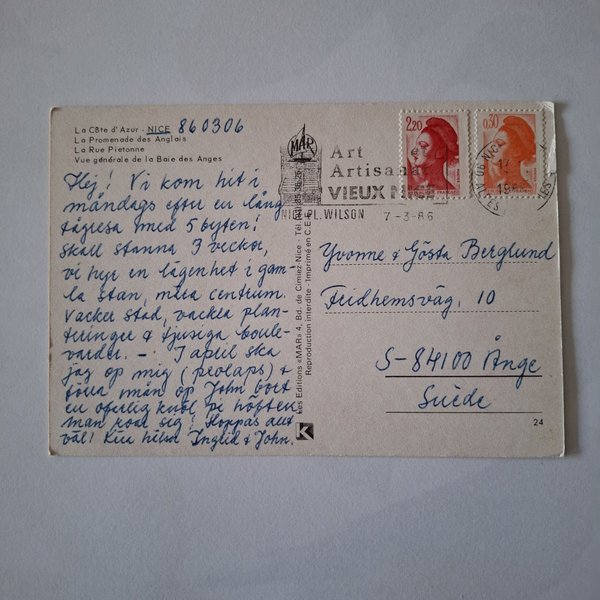 La Côte d'Azur - NICE 860306
La Promenade des Anglais
La Rue Pietonne
Vue générale de la Baie des Anges
Hej! Vi kom hit i
måndags efter en lång
tågresa med 5 byten!
Skall stanna 3 veckor,
vi hyr en lägenhet i gam-
la stan, nära centrum.
Vacker stad, vackra plan-
teringar & tjusiga boule-
varder. - I april ska
jag op mig (prolaps) &
förra mån op John bort
en ofarlig knöl på höften
man roar sig! Hoppas allt
väl! Kära hälsn Ingrid & John.
Les Editions «MAR» 4, Bd. de Cimiez-Nice - Tél.
Reproduction interdite - Imprimé en C.E.E.
MAR
K
2,20
0,30
Art
Artisana
VIEUX NICE
NICE PL. WILSON 7-3-86
Yvonne & Gösta Berglund
Fridhemsväg. 10
S-84100 Ånge
Suède
24